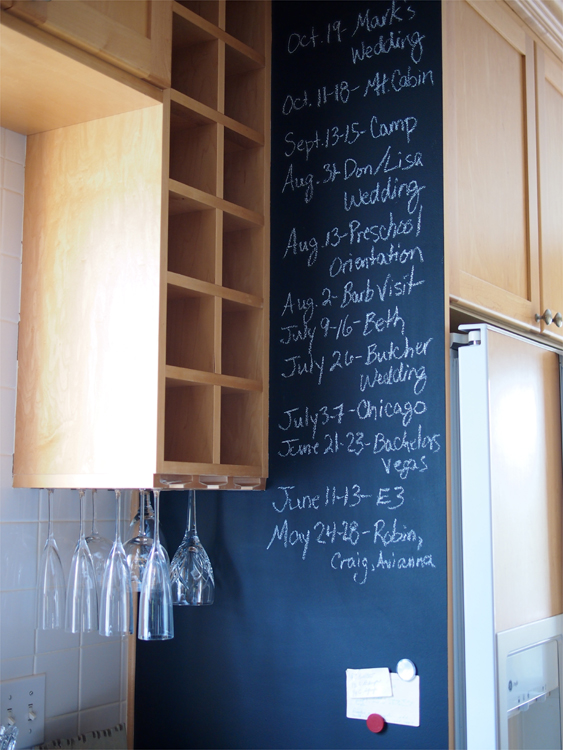 Oct. 19- Mark's
Wedding
Oct. 11-18- Mt. Cabin
Sept. 13-15- Camp
Aug. 31- Don/Lisa
Wedding
Aug. 13- Preschool
Orientation
Aug. 2- Barb Visit
July 9-16- Beth
July 26- Butcher
Wedding
July 3-7- Chicago
June 21-23- Bachelors
Vegas
June 11-13- E3
May 24-28- Robin,
Craig, Avianna